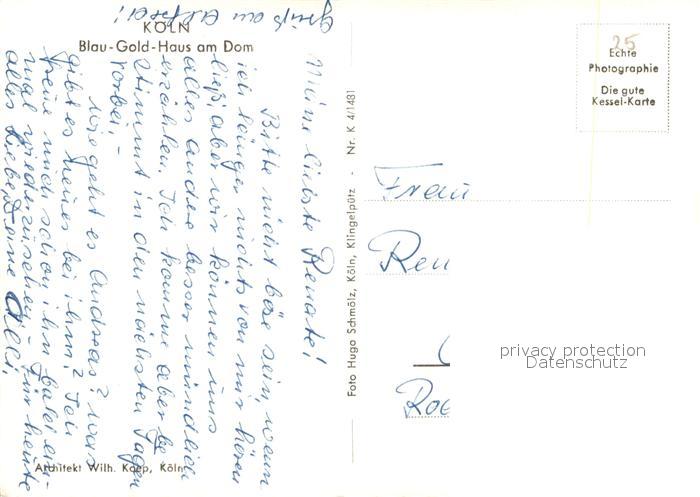 KÖLN
Blau-Gold-Haus am Dom
Meine liebste Renate!
Bitte nicht böse sein, wenn
ich länger nichts von mir hören
ließ, aber wir können uns
alles andere besser mündlich
erzählen. Ich komme aber be
stimmt in den nächsten Tagen
vorbei, -
Wie geht es Andreas? Was
gibt es Neues bei ihm? Ich
freue mich schon ihn bald ein-
mal wiederzusehen - Für heute
alles Liebe Deine
Gruß an
Architekt Wilh. Koep, Köln
Foto Hugo Schmölz, Köln, Klingelpütz - Nr. K 4/1481
25
Echte
Photographie
Die gute
Kessel-Karte
Frau
Ren
Roe
privacy protection
Datenschutz